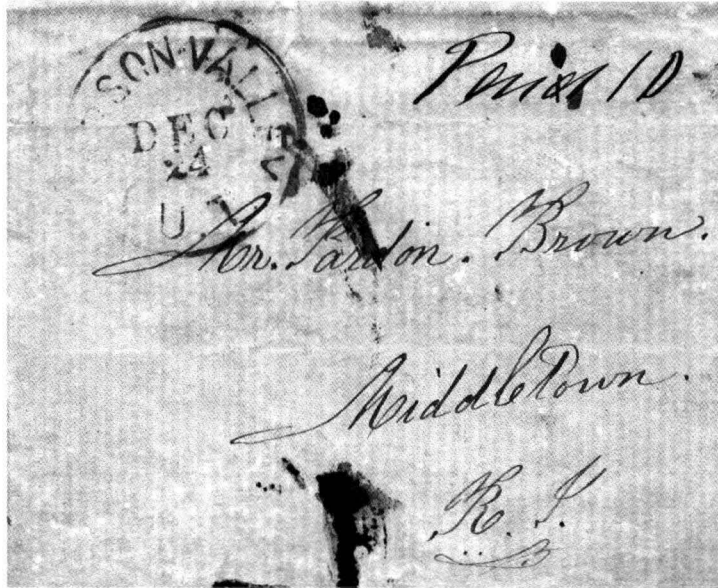 SON·VALLEY
DEC
24
U.T.
Paid 10
Mr. Pardon. Brown.
Middletown.
R. I.